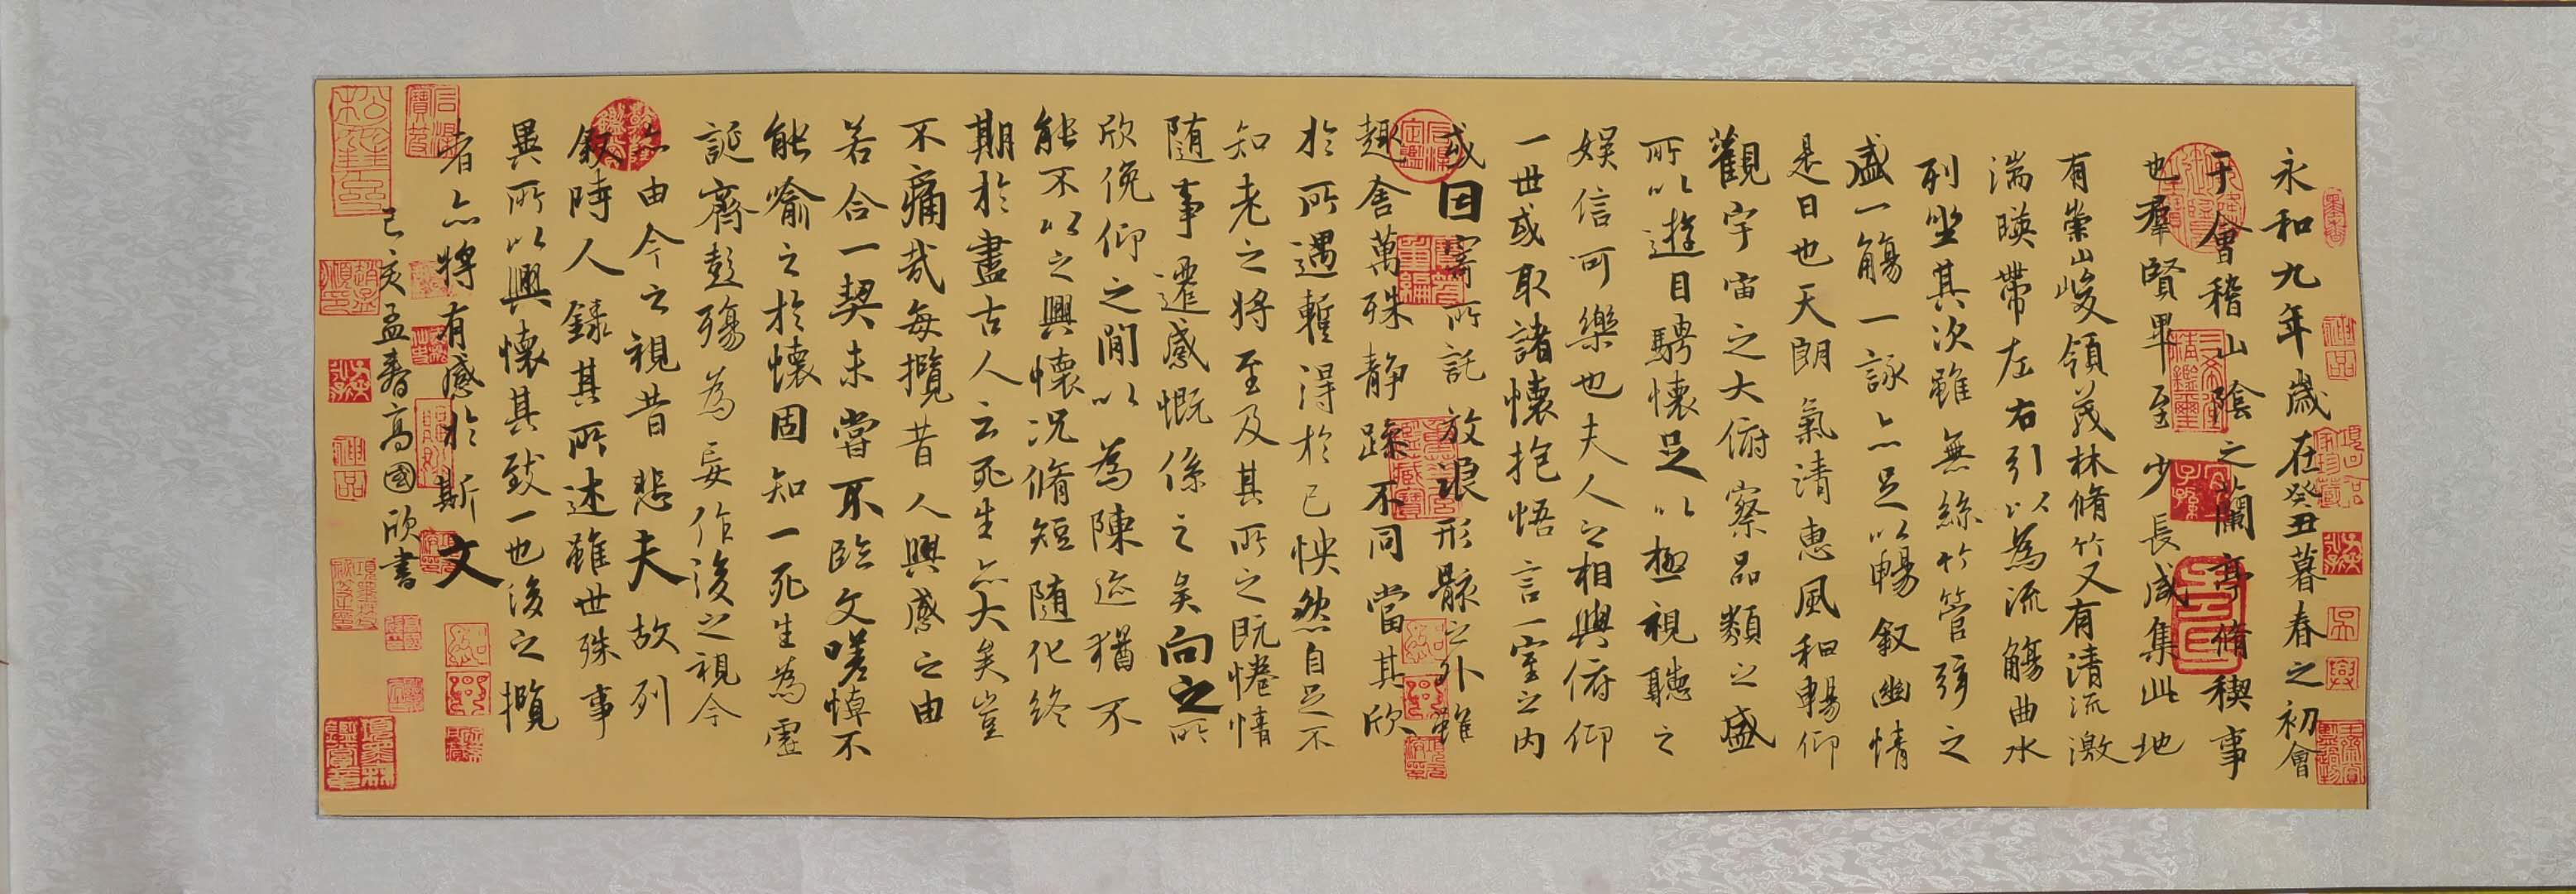 永和九年歲在癸丑暮春之初會
于會稽山陰之蘭亭脩稧事
也羣賢畢至少長咸集此地
有崇山峻領茂林脩竹又有清流激
湍暎帶左右引以為流觴曲水
列坐其次雖無絲竹管弦之
盛一觴一詠亦足以暢敘幽情
是日也天朗氣清惠風和暢仰
觀宇宙之大俯察品類之盛
所以遊目騁懷足以極視聽之
娛信可樂也夫人之相與俯仰
一世或取諸懷抱悟言一室之内
或因寄所託放浪形骸之外雖
趣舍萬殊静躁不同當其欣
於所遇暫得於己怏然自足不
知老之將至及其所之既惓情
隨事遷感慨係之矣向之所
欣俛仰之閒以為陳迹猶不
能不以之興懷況脩短隨化終
期於盡古人云死生亦大矣豈
不痛哉每攬昔人興感之由
若合一契未嘗不臨文嗟悼不
能喻之於懷固知一死生為虛
誕齊彭殤為妄作後之視今
亦由今之視昔悲夫故列
敘時人錄其所述雖世殊事
異所以興懷其致一也後之攬
者亦將有感於斯文
己亥孟春高國欣書